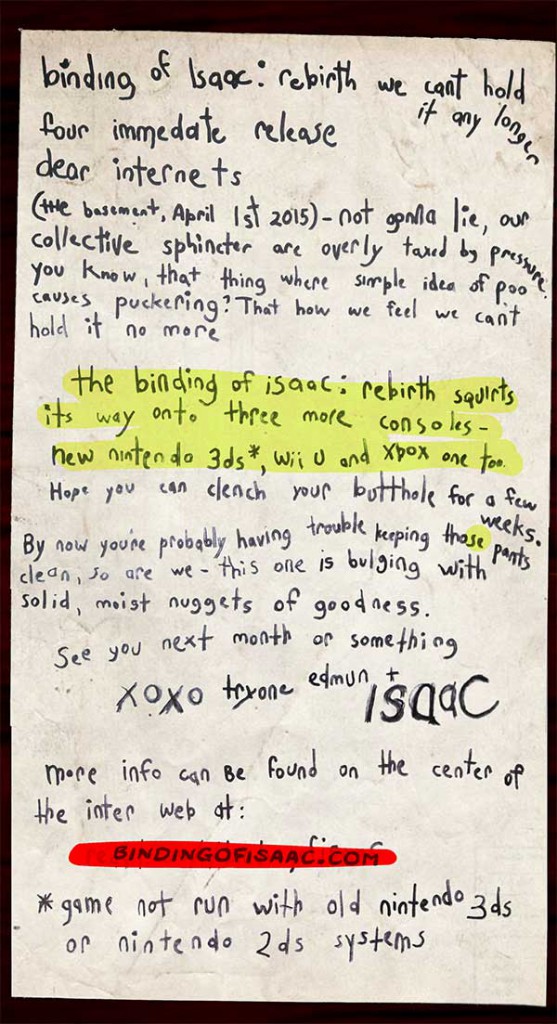 binding of Isaac: rebirth we cant hold
it any longer
four immedate release
dear internets
(the basement, April 1st 2015)- not gonna lie, our
collective sphincter are overly taxed by pressure.
you know, that thing where simple idea of poo
causes puckering? That how we feel we can't
hold it no more
the binding of isaac: rebirth squirts
its way onto three more consoles-
new nintendo 3ds*, wii U and xbox one too.
Hope you can clench your butthole for a few
weeks.
By now you're probably having trouble keeping those pants
clean, so are we - this one is bulging with
solid, moist nuggets of goodness.
See you next month or something
xoxo tryone edmun + ISaaC
more info can Be found on the center of
the inter web at:
BINDINGOFISAAC.COM
*game not run with old nintendo 3ds
or nintendo 2ds systems